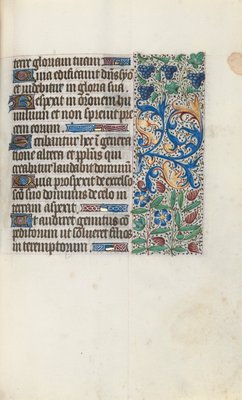 terre gloriam tuam
Quia edificauit dns syo
et uidebitur in gloria sua
Respexit in oronem hu
milium et non spreuit pre
cem eorum
Scribantur hec i genera
tione altera et pplus qui
creabitur laudabit dominu
Quia prospexit de excelso
sco suo dominus de celo in
terram aspexit
Ut audiret gemitus co
peditorum ut solueret filios
interemptorum